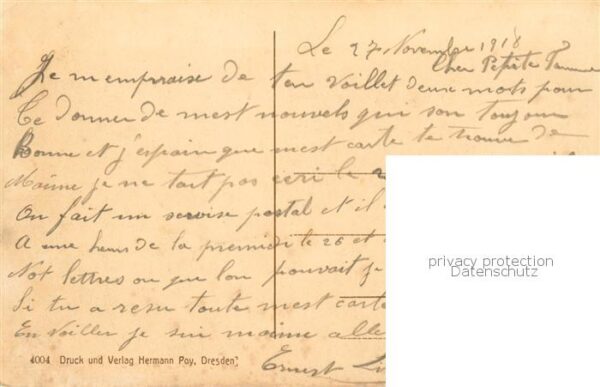 Le 27 Novembre 1918
Cher Petite Famme
Je m'emprraise de ten voillet deux mots pour
te donner de mest nouvels qui son toujour
bonne et j'espain que mest carte te trouve de
Maime je ne tait pas ecri le
On fait un servise postal et il
a une heurs de la premidi le 26 et
Not lettres ou que lon pouvait je
Si tu a resu toute mest carte
En voiller je sui maime alle
Ernest
4004 Druck und Verlag Hermann Poy, Dresden
privacy protection
Datenschutz